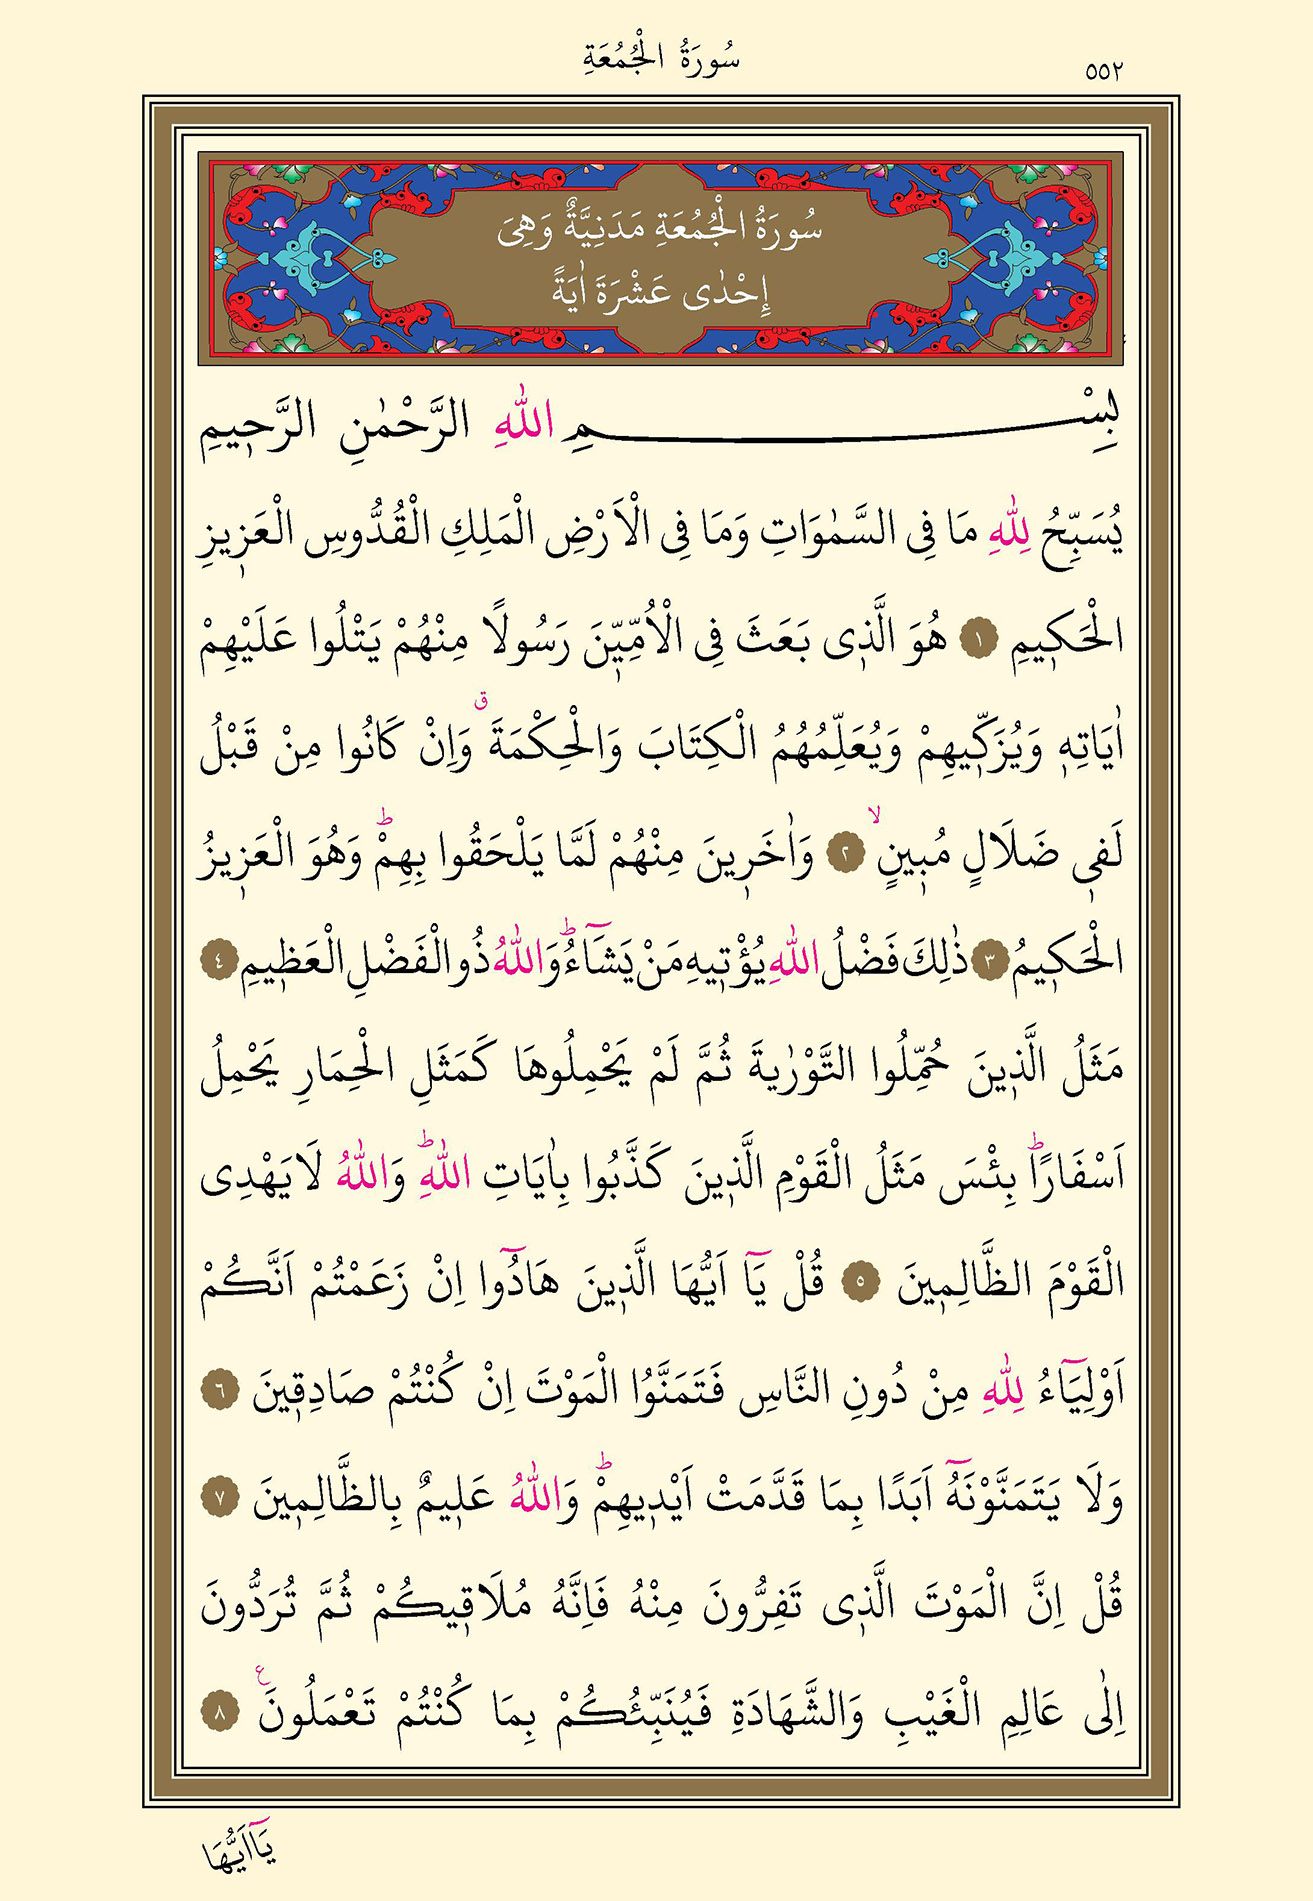 سُورَةُ الْجُمُعَةِ
٥٥٢
سُورَةُ الْجُمُعَةِ مَدَنِيَّةٌ وَهِىَ
إِحْدٰى عَشْرَةَ اٰيَةً
بِسْمِ اللّٰهِ الرَّحْمٰنِ الرَّحٖيمِ
يُسَبِّحُ لِلّٰهِ مَا فِى السَّمٰوَاتِ وَمَا فِى الْاَرْضِ الْمَلِكِ الْقُدُّوسِ الْعَزٖيزِ
الْحَكٖيمِ ١ هُوَ الَّذٖى بَعَثَ فِى الْاُمِّيّٖنَ رَسُولًا مِنْهُمْ يَتْلُوا عَلَيْهِمْ
اٰيَاتِهٖ وَيُزَكّٖيهِمْ وَيُعَلِّمُهُمُ الْكِتَابَ وَالْحِكْمَةَ ق وَاِنْ كَانُوا مِنْ قَبْلُ
لَفٖى ضَلَالٍ مُبٖينٍ لا ٢ وَاٰخَرٖينَ مِنْهُمْ لَمَّا يَلْحَقُوا بِهِمْ ط وَهُوَ الْعَزٖيزُ
الْحَكٖيمُ ٣ ذٰلِكَ فَضْلُ اللّٰهِ يُؤْتٖيهِ مَنْ يَشَٓاءُ ط وَاللّٰهُ ذُو الْفَضْلِ الْعَظٖيمِ ٤
مَثَلُ الَّذٖينَ حُمِّلُوا التَّوْرٰيةَ ثُمَّ لَمْ يَحْمِلُوهَا كَمَثَلِ الْحِمَارِ يَحْمِلُ
اَسْفَارًا ط بِئْسَ مَثَلُ الْقَوْمِ الَّذٖينَ كَذَّبُوا بِاٰيَاتِ اللّٰهِ ط وَاللّٰهُ لَا يَهْدِى
الْقَوْمَ الظَّالِمٖينَ ٥ قُلْ يَٓا اَيُّهَا الَّذٖينَ هَادُٓوا اِنْ زَعَمْتُمْ اَنَّكُمْ
اَوْلِيَٓاءُ لِلّٰهِ مِنْ دُونِ النَّاسِ فَتَمَنَّوُا الْمَوْتَ اِنْ كُنْتُمْ صَادِقٖينَ ٦
وَلَا يَتَمَنَّوْنَهُٓ اَبَدًا بِمَا قَدَّمَتْ اَيْدٖيهِمْ ط وَاللّٰهُ عَلٖيمٌ بِالظَّالِمٖينَ ٧
قُلْ اِنَّ الْمَوْتَ الَّذٖى تَفِرُّونَ مِنْهُ فَاِنَّهُ مُلَاقٖيكُمْ ثُمَّ تُرَدُّونَ
اِلٰى عَالِمِ الْغَيْبِ وَالشَّهَادَةِ فَيُنَبِّئُكُمْ بِمَا كُنْتُمْ تَعْمَلُونَ ع ٨
يَٓا اَيُّهَا